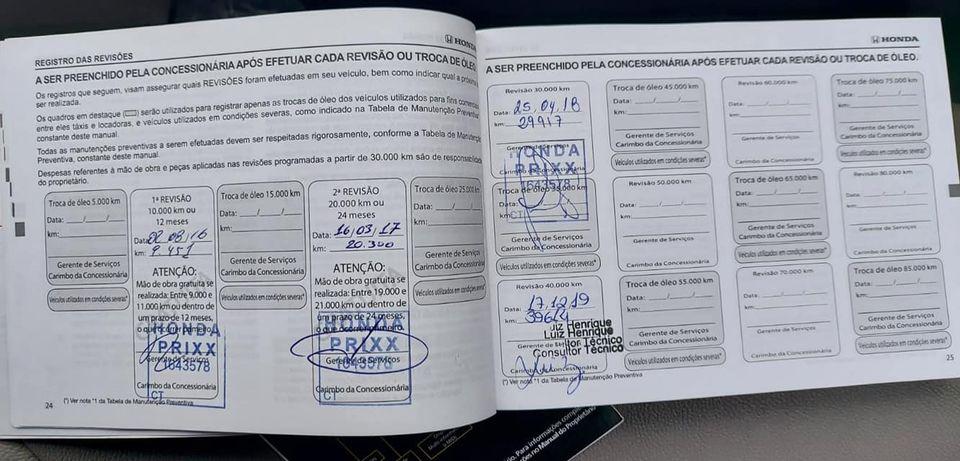 HONDA
REGISTRO DAS REVISÕES
A SER PREENCHIDO PELA CONCESSIONÁRIA APÓS EFETUAR CADA REVISÃO OU TROCA DE ÓLEO.
Os registros que seguem, visam assegurar quais REVISÕES foram efetuadas em seu veículo, bem como indicar qual a próxima a
ser realizada.
Os quadros em destaque ( ) serão utilizados para registrar apenas as trocas de óleo dos veículos utilizados para fins comerciais,
entre eles táxis e locadoras, e veículos utilizados em condições severas, como indicado na Tabela de Manutenção Preventiva
constante deste manual.
Todas as manutenções preventivas a serem efetuadas devem ser respeitadas rigorosamente, conforme a Tabela de Manutenção
Preventiva, constante deste manual.
Despesas referentes à mão de obra e peças aplicadas nas revisões programadas a partir de 30.000 km são de responsabilidade
do proprietário.
Troca de óleo 5.000 km
Data: __/__/__
km:
Gerente de Serviços
Carimbo da Concessionária
Veículos utilizados em condições severas*
1ª REVISÃO
10.000 km ou
12 meses
Data: 08/16
km: 9.451
ATENÇÃO:
Mão de obra gratuita se
realizada: Entre 9.000 e
11.000 km ou dentro de
um prazo de 12 meses,
o que ocorrer primeiro.
HONDA
PRIXX
1643578
CT
Gerente de Serviços
Carimbo da Concessionária
Troca de óleo 15.000 km
Data: __/__/__
km:
Gerente de Serviços
Carimbo da Concessionária
Veículos utilizados em condições severas*
2ª REVISÃO
20.000 km ou
24 meses
Data: 16/03/17
km: 20.300
ATENÇÃO:
Mão de obra gratuita se
realizada: Entre 19.000 e
21.000 km ou dentro de
um prazo de 24 meses,
o que ocorrer primeiro.
HONDA
PRIXX
1643578
CT
Gerente de Serviços
Carimbo da Concessionária
Troca de óleo 25.000 km
Data: __/__/__
km:
Gerente de Serviços
Carimbo da Concessionária
Veículos utilizados em condições severas*
24
(*) Ver nota *1 da Tabela de Manutenção Preventiva
HONDA
A SER PREENCHIDO PELA CONCESSIONÁRIA APÓS EFETUAR CADA REVISÃO OU TROCA DE ÓLEO.
Revisão 30.000 km
Data: 25.04.18
km: 29917
HONDA
PRIXX
1643578
CT
Troca de óleo 35.000 km
Data:
km:
Gerente de Serviços
Carimbo da Concessionária
Veículos utilizados em condições severas*
Revisão 40.000 km
Data: 17.12.19
km: 39614
Luiz Henrique
Luiz Henrique
Consultor Técnico
Gerente de Serviços
(*) Ver nota *1 da Tabela de Manutenção Preventiva
Troca de óleo 45.000 km
Data: __/__/__
km:
Gerente de Serviços
Carimbo da Concessionária
Veículos utilizados em condições severas*
Revisão 50.000 km
Gerente de Serviços
Carimbo da Concessionária
Troca de óleo 55.000 km
Data: __/__/__
km:
Gerente de Serviços
Carimbo da Concessionária
Veículos utilizados em condições severas*
Revisão 60.000 km
Data:
km:
Gerente de Serviços
Carimbo da Concessionária
Troca de óleo 65.000 km
Data: __/__/__
km:
Gerente de Serviços
Carimbo da Concessionária
Veículos utilizados em condições severas*
Revisão 70.000 km
Data:
km:
Gerente de Serviços
Carimbo da Concessionária
Troca de óleo 75.000 km
Data: __/__/__
km:
Gerente de Serviços
Carimbo da Concessionária
Veículos utilizados em condições severas*
Revisão 80.000 km
Gerente de Serviços
Carimbo da Concessionária
Troca de óleo 85.000 km
Data: __/__/__
km:
Gerente de Serviços
Carimbo da Concessionária
Veículos utilizados em condições severas*
25
Para informações
no Manual do Proprietário